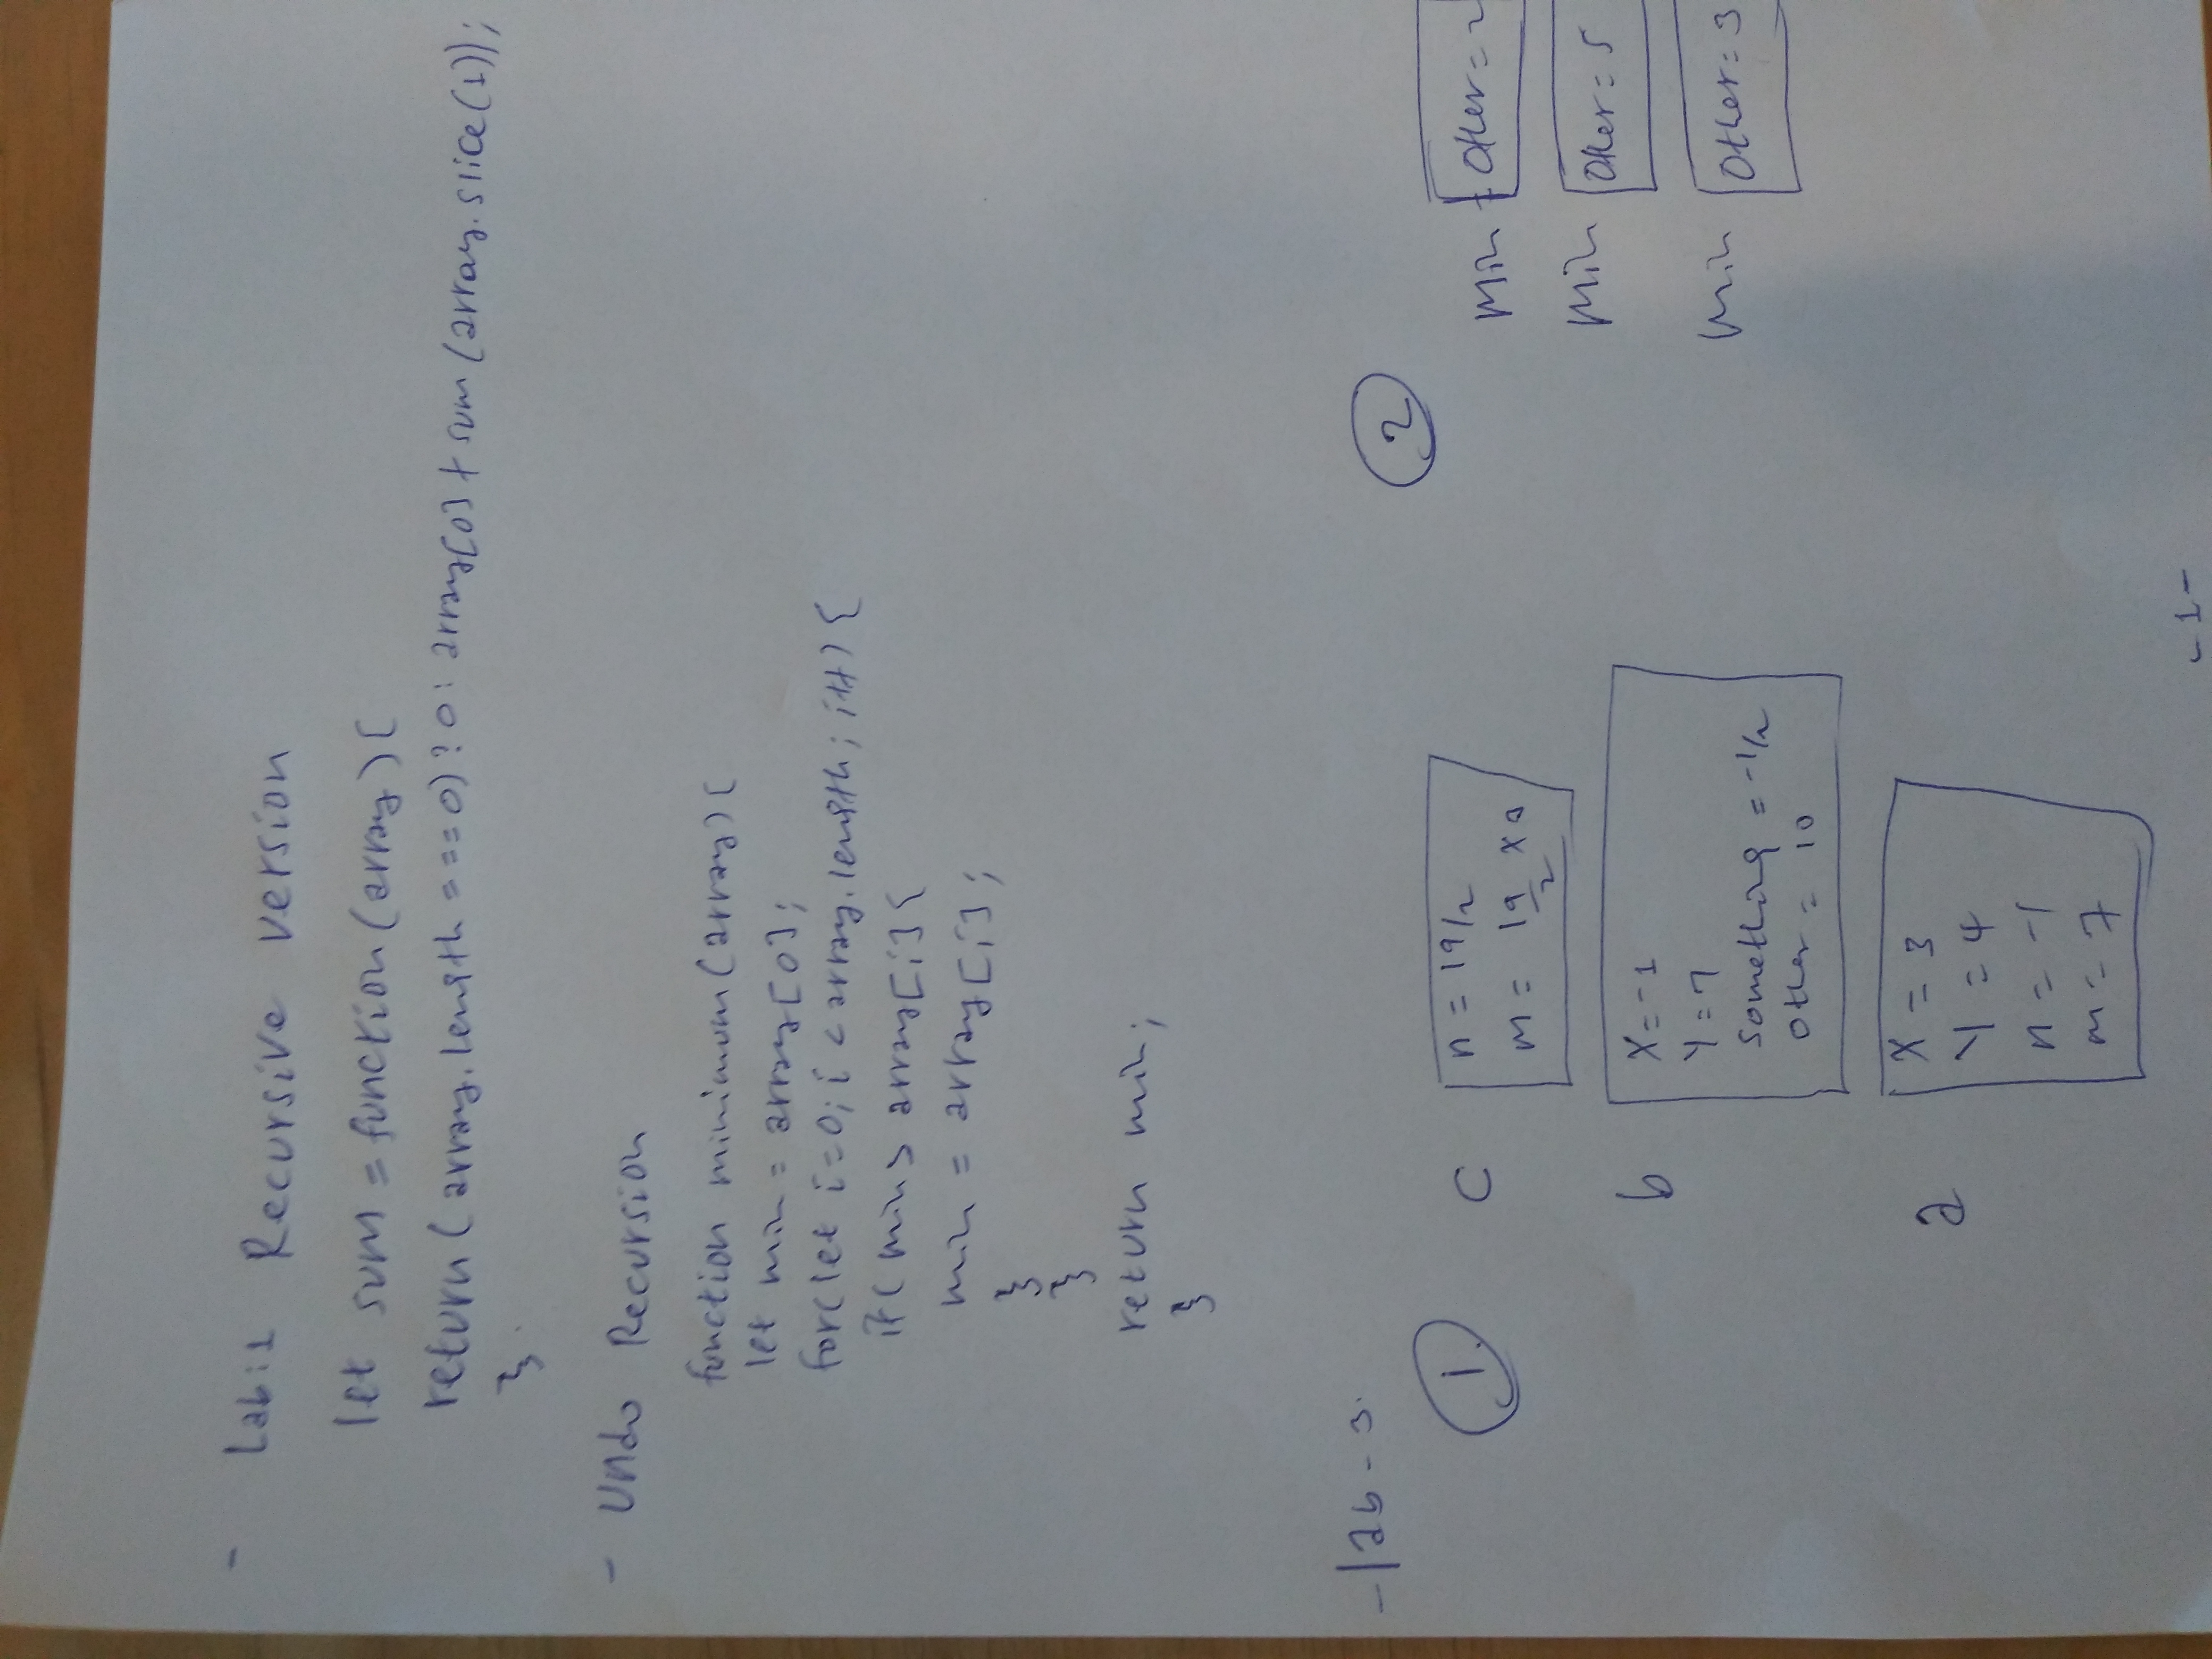 - Lab:1 Recursive version
let sum = function(array){
return(array.length === 0) ? 0 : array[0] + sum(array.slice(1));
}
- Undo Recursion
function minimum(array){
let min = array[0];
for(let i=0; i < array.length; i++) {
if( min > array[i] {
min = array[i];
}
}
return min;
}
- lab - 3.
1.
c
n = 19/2
m = 19/2 x
b
X = -1
Y = 7
something = -1/2
other = 10
a
X = 3
Y = 4
n = -1
m = 7
2
Min Other = 2
Min Other = 5
Min Other = 3
- 1 -